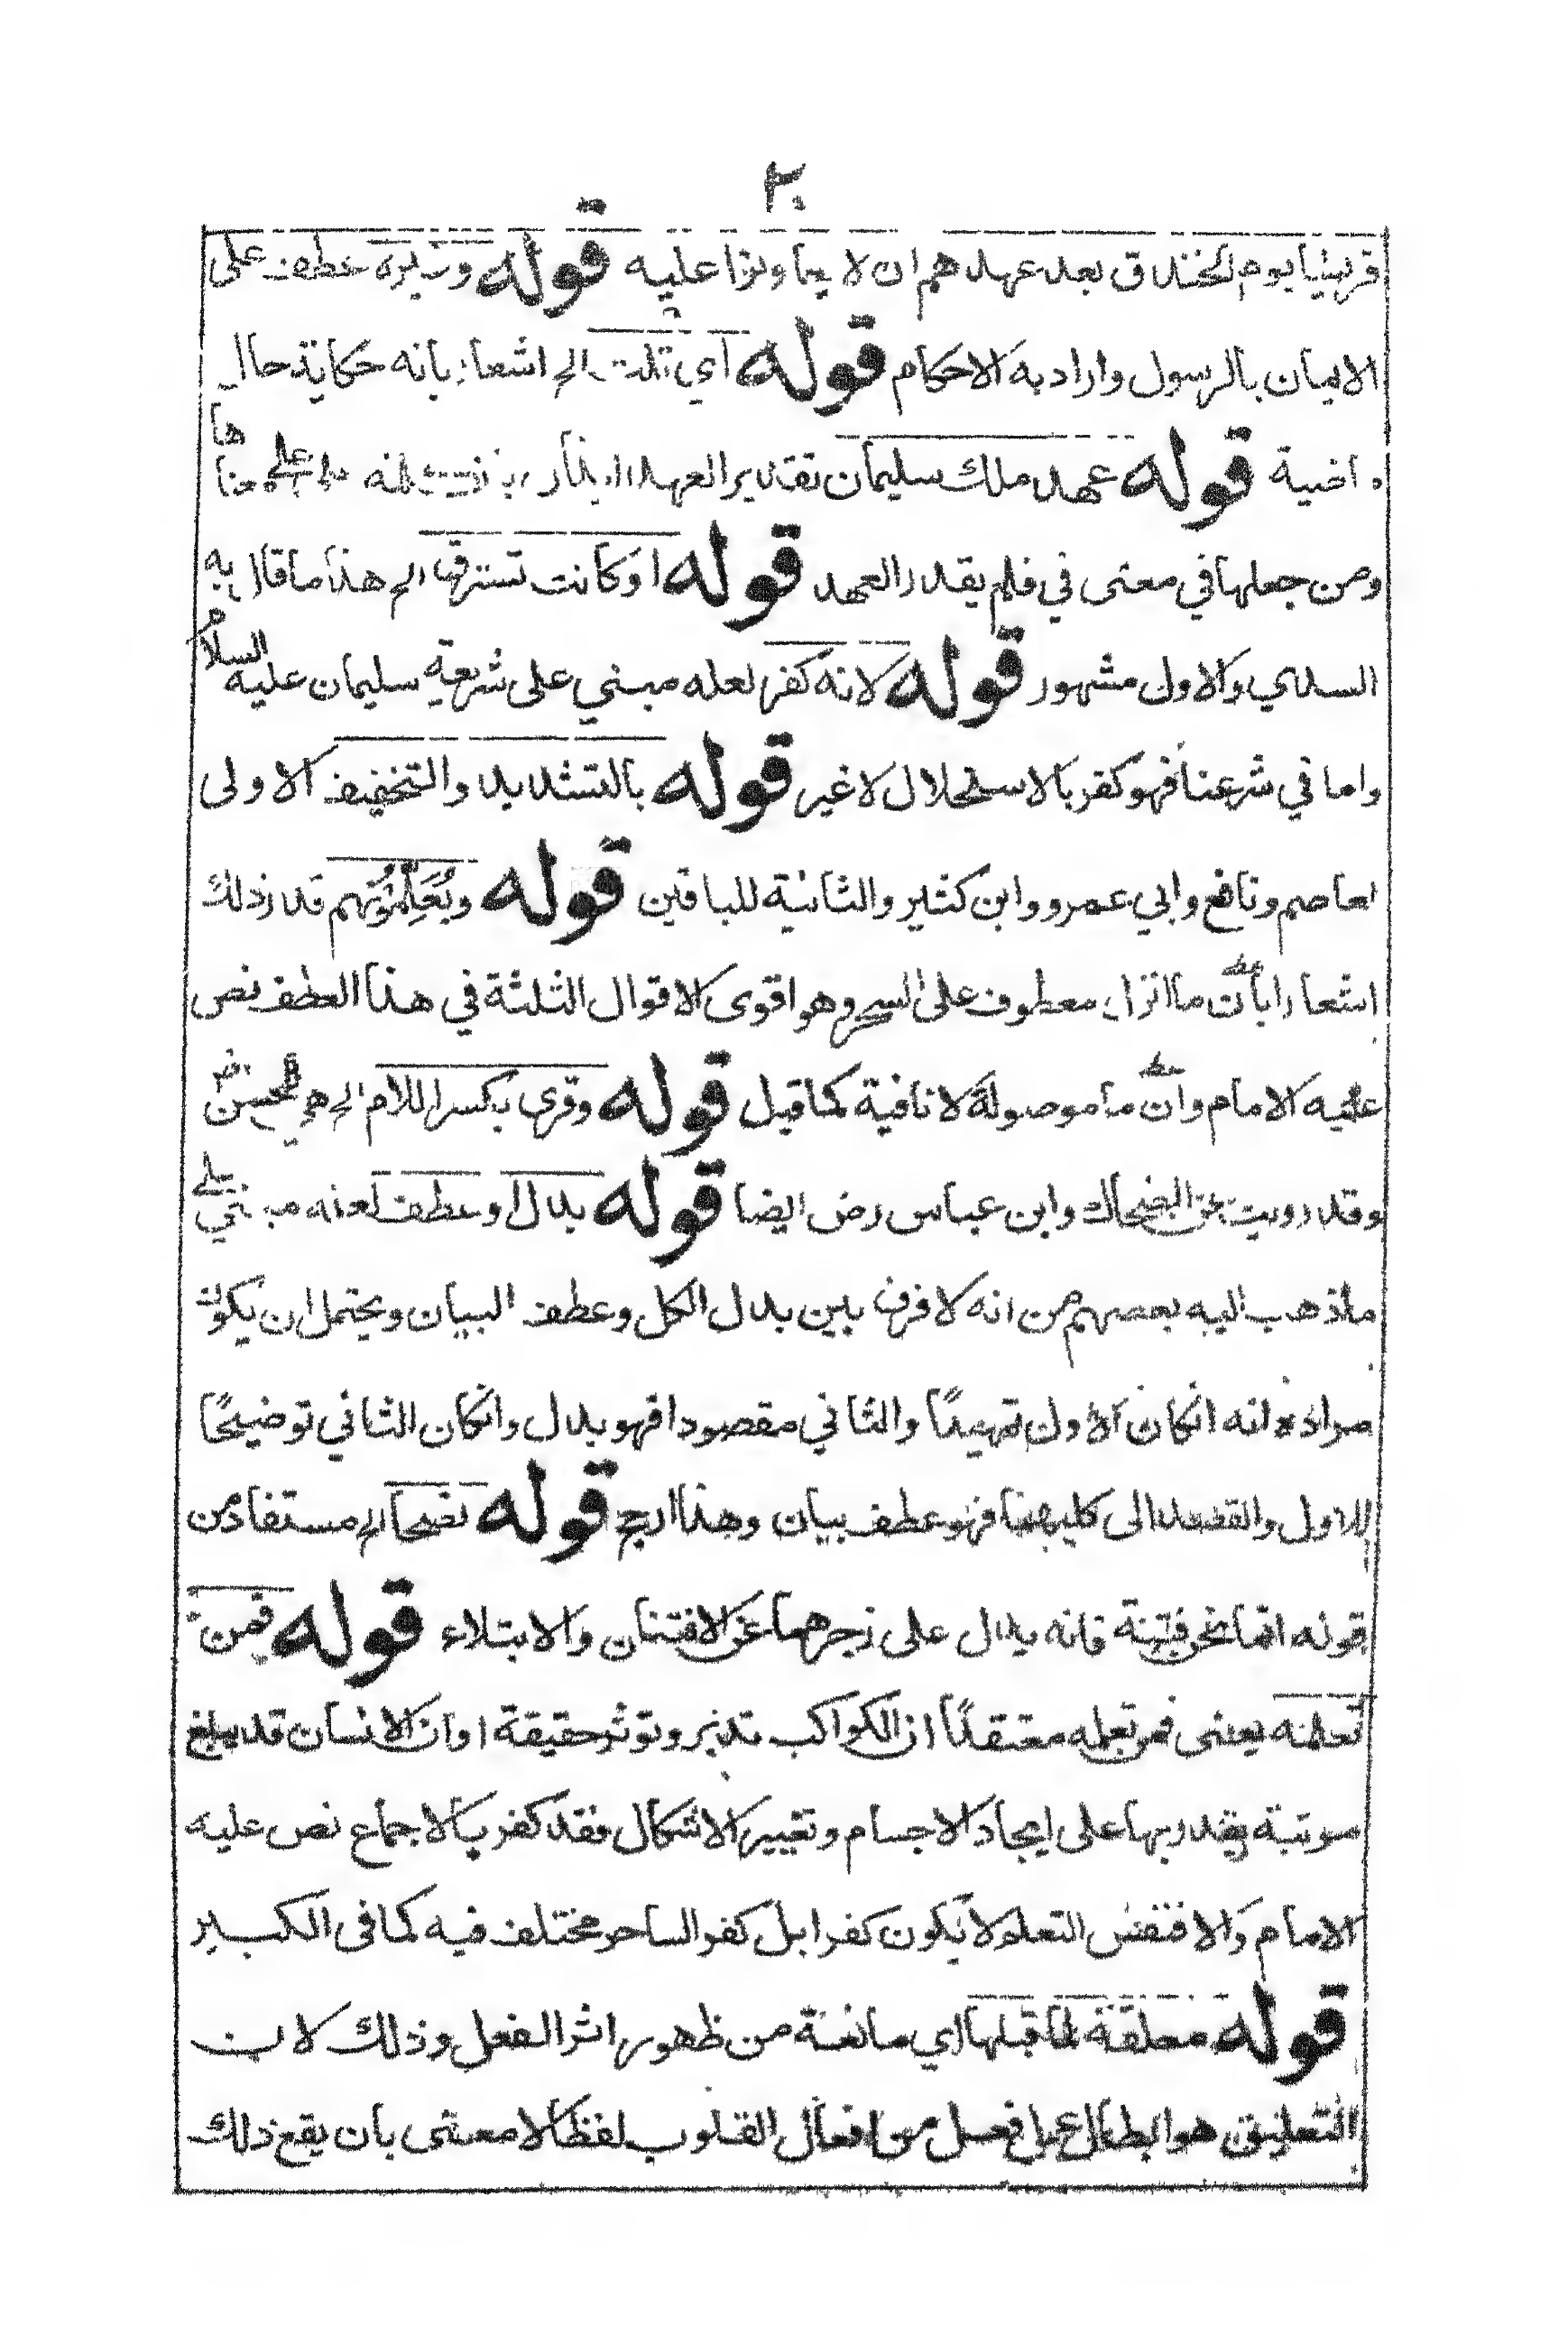 ٢٠
قريشا يوم الخندق بعد عهدهم ان لا يعاونوا عليه قوله وغيره عطف على
الايمان بالرسول واراد به الاحكام قوله اي تلت الخ اشعار بانه حكاية حال
ماضية قوله عهد ملك سليمان تقدير العهد على
ومن جعلها في معنى في فلم يقدر العهد قوله او كانت تسترق الخ هذا ما قال به
السدي والاول مشهور قوله لانه كفر لعله مبني على شريعة سليمان عليه السلام
واما في شرعنا فهو كفر بالاستحلال لا غير قوله بالتشديد والتخفيف الاولى
لعاصم ونافع وابي عمرو وابن كثير والثانية للباقين قوله ويُعَلِّمُونهم قدر ذلك
اشعارا بان ما انزل معطوف على السحر وهو اقوى الاقوال الثلثة في هذا العطف نص
عليه الامام وان ما موصولة لا نافية كما قيل قوله وقرئ بكسر اللام الخ هي للحسن
وقد رويت عن الضحاك وابن عباس رض ايضا قوله بدل او عطف لعله مبني على
ما ذهب اليه بعضهم من انه لا فرق بين بدل الكل وعطف البيان ويحتمل ان يكون
مراده انه انكان الاول تمهيدًا والثاني مقصودا فهو بدل وانكان الثاني توضيحًا
للاول والقصد الى كليهما فهو عطف بيان وهذا ارجح قوله نصحا الخ مستفاد من
قوله انما نحن فتنة فانه يدل على زجرهما عن الافتتان والابتلاء قوله فمن
تعلمه يعنى فمن تعلمه معتقدًا ان الكواكب تدبر وتوثر حقيقة او ان الانسان قد يبلغ
مرتبة يقدر بها على ايجاد الاجسام وتغيير الاشكال فقد كفر بالاجماع نص عليه
الامام والا فنفس التعلم لا يكون كفرا بل كفر الساحر مختلف فيه كما فى الكبير
قوله معلقة لما قبلها اي مانعة من ظهور اثر الفعل وذلك لان
التعليق هو ابطال عمل فعل من افعال القلوب لفظا لا معنى بان يقع ذلك